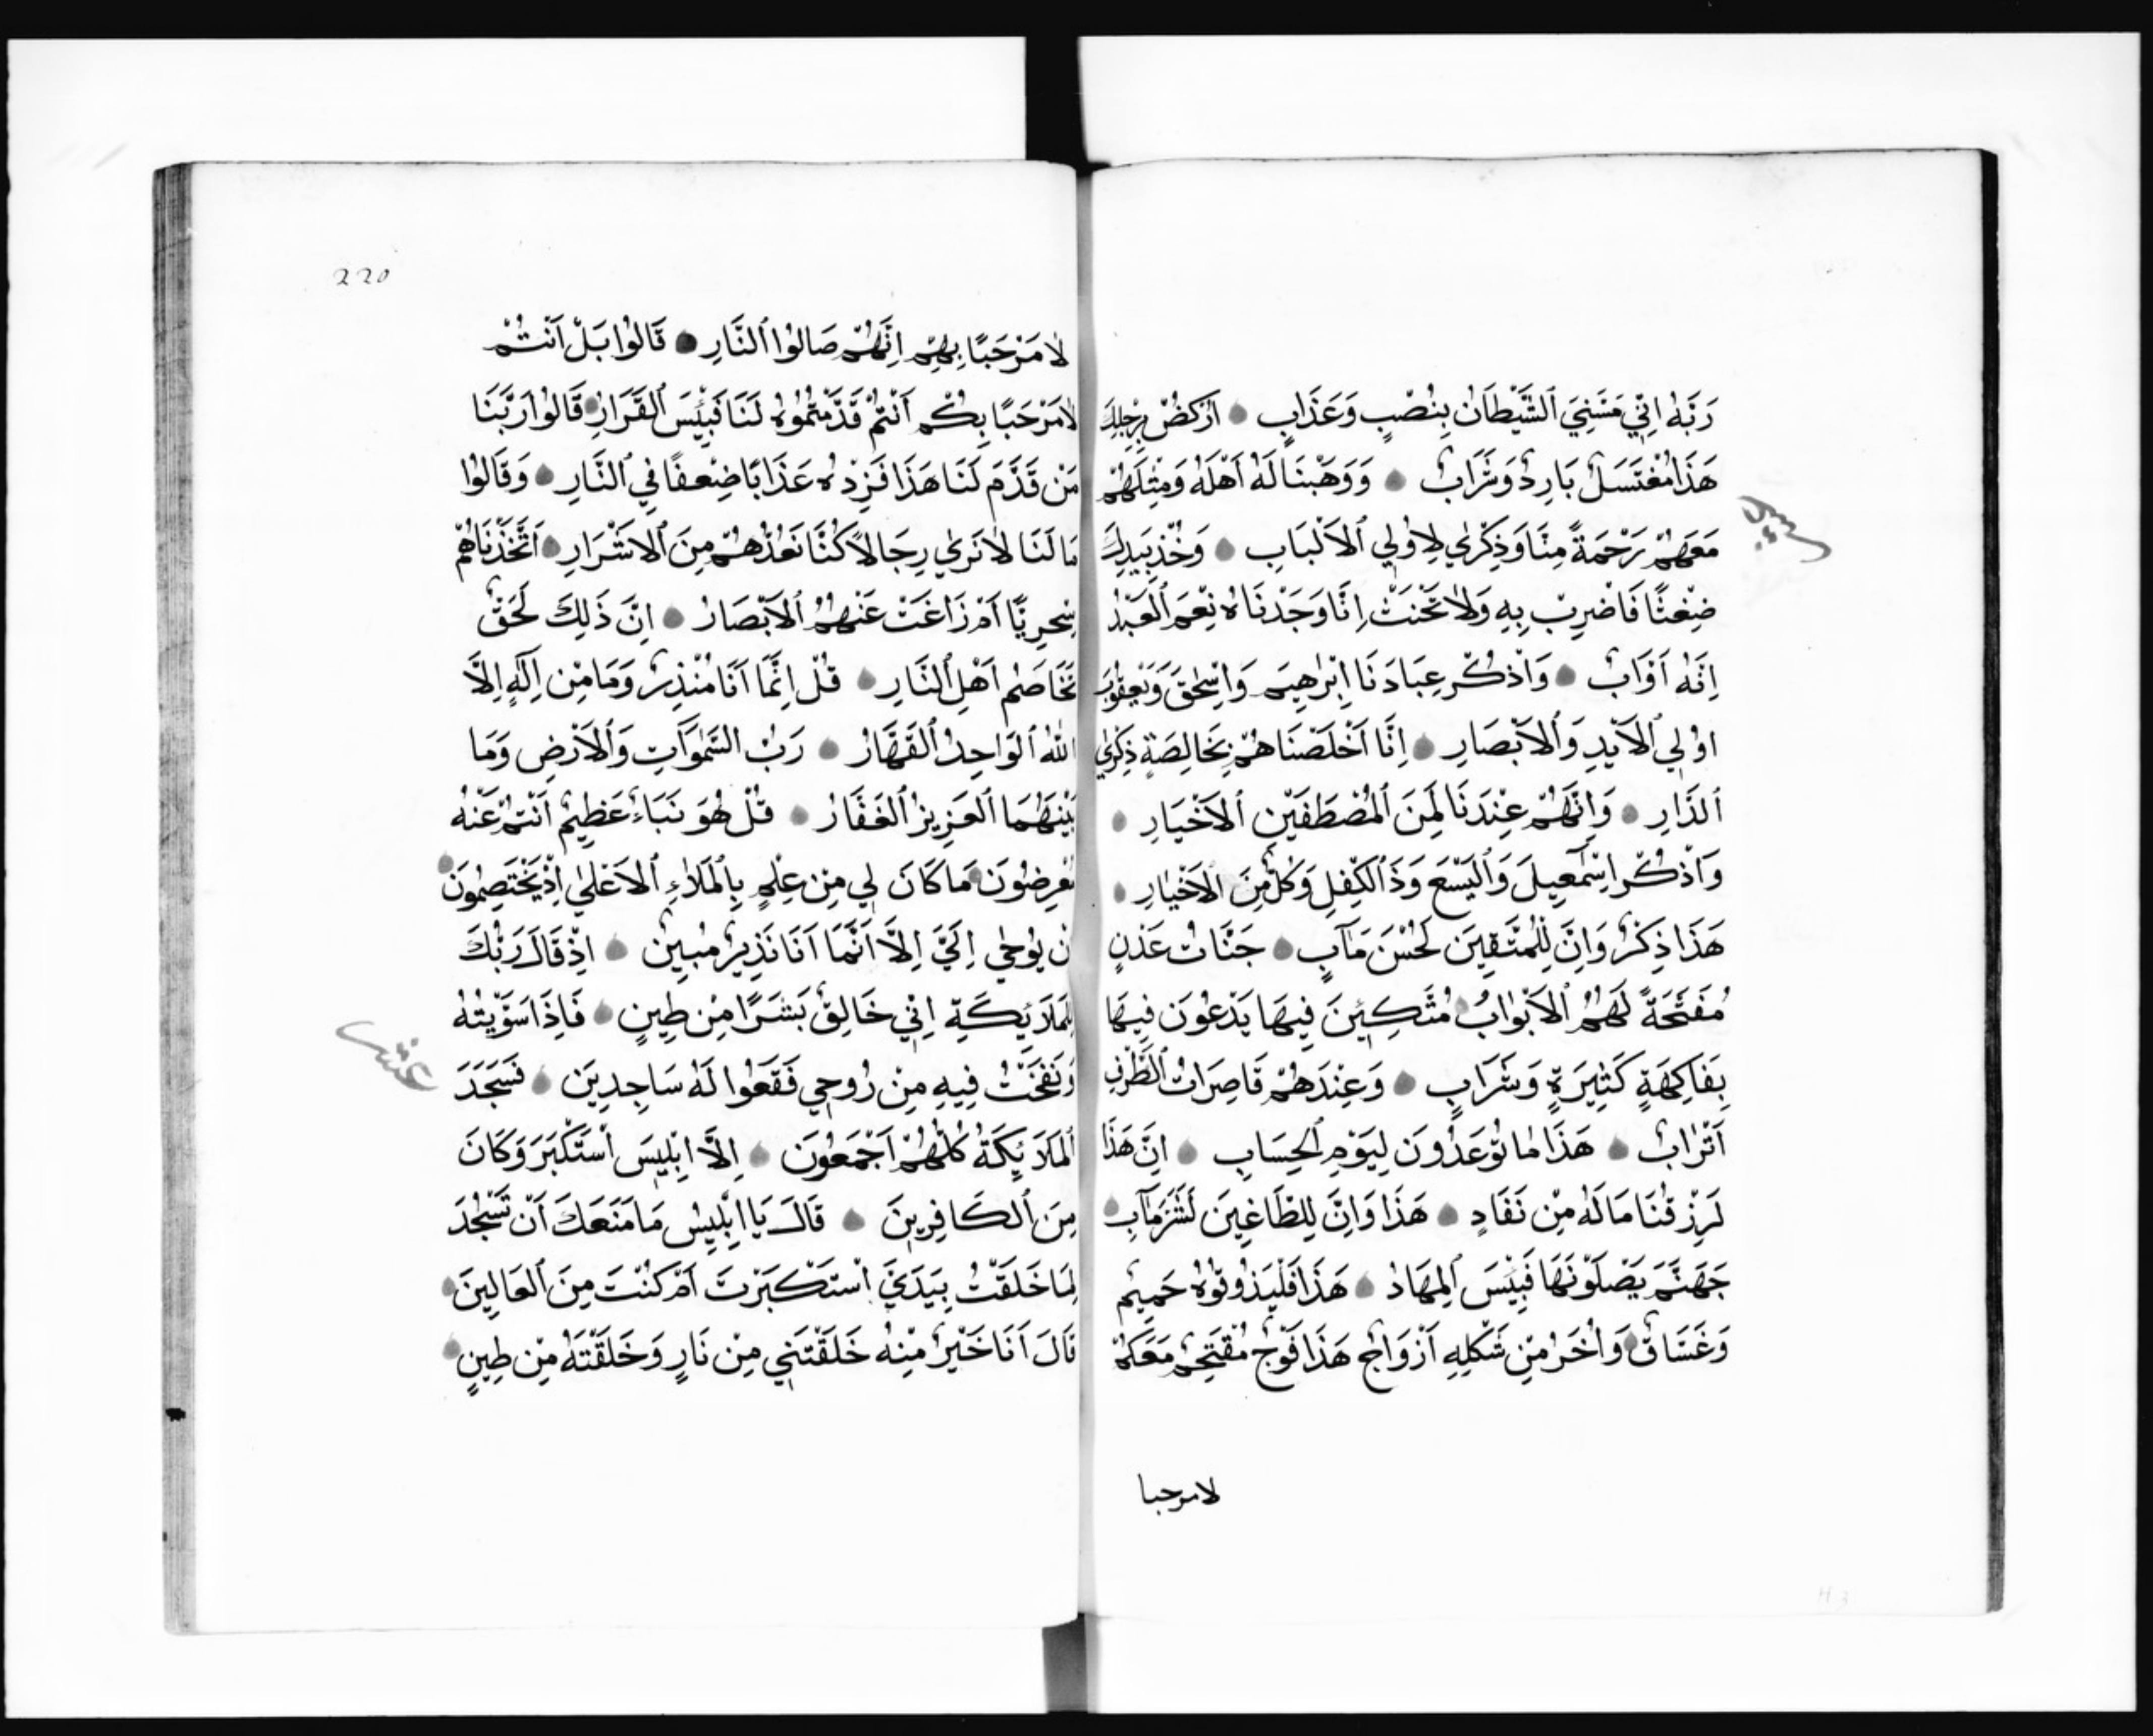 رَبَّهُ اِنِّي مَسَّنِيَ ٱلشَّيْطَانُ بِنُصْبٍ وَعَذَابٍ ۝ اُرْكُضْ بِرِجْلِكَ
هَذَا مُغْتَسَلٌ بَارِدٌ وَشَرَابٌ ۝ وَوَهَبْنَا لَهُ اَهْلَهُ وَمِثْلَهُمْ
مَعَهُمْ رَحْمَةً مِنَّا وَذِكْرٰي لِاُولِي ٱلاَلْبَابِ ۝ وَخُذْ بِيَدِكَ
ضِغْثًا فَاضْرِبْ بِهِ وَلاَ تَحْنَثْ اِنَّا وَجَدْنَاهُ نِعْمَ ٱلْعَبْدُ
اِنَّهُ اَوَّابٌ ۝ وَاذْكُرْ عِبَادَنَا اِبْرٰهِيمَ وَاِسْحٰقَ وَيَعْقُوبَ
اوُلِي ٱلاَيْدِ وَٱلاَبْصَارِ ۝ اِنَّا اَخْلَصْنَاهُمْ بِخَالِصَةٍ ذِكْرٰي
ٱلدَّارِ ۝ وَاِنَّهُمْ عِنْدَنَا لَمِنَ ٱلْمُصْطَفَيْنِ ٱلاَخْيَارِ ۝
وَاذْكُرْ اِسْمٰعِيلَ وَٱلْيَسَعَ وَذَٱلْكِفْلِ وَكُلٌّ مِنَ ٱلاَخْيٰارِ ۝
هَذَا ذِكْرٌ وَاِنَّ لِلْمُتَّقِينَ لَحُسْنَ مَآبٍ ۝ جَنَّاتُ عَدْنٍ
مُفَتَّحَةً لَهُمُ ٱلاَبْوٰابُ ۝ مُتَّكِئِينَ فِيهَا يَدْعُونَ فِيهَا
بِفَاكِهَةٍ كَثِيرَةٍ وَشَرَابٍ ۝ وَعِنْدَهُمْ قَاصِرَاتُ ٱلطَّرْفِ
اَتْرٰابٌ ۝ هَذَا مٰا تُوعَدُونَ لِيَوْمِ ٱلْحِسَابِ ۝ اِنَّ هَذَا
لَرِزْقُنَا مَا لَهُ مِنْ نَفَادٍ ۝ هَذَا وَاِنَّ لِلطَّاغِينَ لَشَرَّ مَآبٍ ۝
جَهَنَّمَ يَصْلَوْنَهَا فَبِئْسَ ٱلْمِهَادُ ۝ هَذَا فَلْيَذُوقُوهُ حَمِيمٌ
وَغَسَّاقٌ ۝ وَاُخَرُ مِنْ شَكْلِهِ اَزْوَاجٌ هَذَا فَوْجٌ مُقْتَحِمٌ مَعَكُمْ
لا مرحبا
220
لاَ مَرْحَبًا بِهِمْ اِنَّهُمْ صَالُوا ٱلنَّارِ ۝ قَالُوا بَلْ اَنْتُمْ
لاَ مَرْحَبًا بِكُمْ اَنْتُمْ قَدَّمْتُمُوهُ لَنَا فَبِئْسَ ٱلْقَرَارُ ۝ قَالُوا رَبَّنَا
مَنْ قَدَّمَ لَنَا هَذَا فَزِدْهُ عَذَابًا ضِعْفًا فِي ٱلنَّارِ ۝ وَقَالُوا
مَا لَنَا لاَ نَرٰي رِجَالاً كُنَّا نَعُدُّهُمْ مِنَ ٱلاَشْرَارِ ۝ اَتَّخَذْنَاهُمْ
سِخْرِيًّا اَمْ زَاغَتْ عَنْهُمُ ٱلاَبْصَارُ ۝ اِنَّ ذَلِكَ لَحَقٌّ
تَخَاصُمُ اَهْلِ ٱلنَّارِ ۝ قُلْ اِنَّمَا اَنَا مُنْذِرٌ وَمَا مِنْ اِلَهٍ اِلاَّ
اللّٰهُ ٱلْوَاحِدُ ٱلْقَهَّارُ ۝ رَبُّ السَّمٰوَاتِ وَٱلاَرْضِ وَمَا
بَيْنَهُمَا ٱلْعَزِيزُ ٱلْغَفَّارُ ۝ قُلْ هُوَ نَبَاءٌ عَظِيمٌ اَنْتُمْ عَنْهُ
مُعْرِضُونَ ۝ مَا كَانَ لِي مِنْ عِلْمٍ بِالْمَلاَءِ ٱلاَعْلٰي اِذْ يَخْتَصِمُونَ ۝
اِنْ يُوحٰي اِلَيَّ اِلاَّ اَنَّمَا اَنَا نَذِيرٌ مُبِينٌ ۝ اِذْ قَالَ رَبُّكَ
لِلْمَلاَئِكَةِ اِنِّي خَالِقٌ بَشَرًا مِنْ طِينٍ ۝ فَاِذَا سَوَّيْتُهُ
وَنَفَخْتُ فِيهِ مِنْ رُوحِي فَقَعُوا لَهُ سَاجِدِينَ ۝ فَسَجَدَ
ٱلْمَلاَئِكَةُ كُلُّهُمْ اَجْمَعُونَ ۝ اِلاَّ اِبْلِيسَ اسْتَكْبَرَ وَكَانَ
مِنَ ٱلْكَافِرِينَ ۝ قَالَ يَا اِبْلِيسُ مَا مَنَعَكَ اَنْ تَسْجُدَ
لِمَا خَلَقْتُ بِيَدَيَّ اسْتَكْبَرْتَ اَمْ كُنْتَ مِنَ ٱلْعَالِينَ ۝
قَالَ اَنَا خَيْرٌ مِنْهُ خَلَقْتَنِي مِنْ نَارٍ وَخَلَقْتَهُ مِنْ طِينٍ ۝
عشر